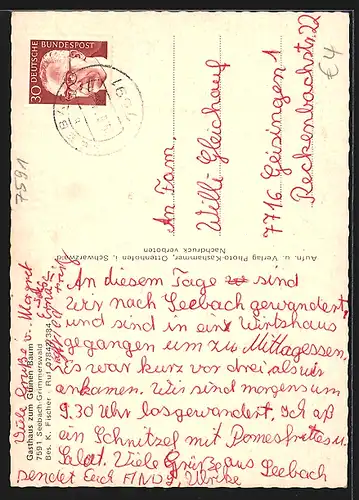 30 DEUTSCHE BUNDESPOST
7591
€4
An Fam.
Willi Gleichauf
7716 Geisingen 1
Reckenbachstr. 22
Aufn. u. Verlag Photo-Kashammer, Ottenhöfen i. Schwarzwald
Nachdruck verboten
Gasthaus zum Grünen Baum
7591 Seebach-Grimmerswald
Bes. K. Fischer · Ruf 07842/384
An diesem Tage sind
wir nach Seebach gewandert
und sind in ein Wirtshaus
gegangen um zu Mittagessen.
Es war kurz vor drei, als wir
ankamen. Wir sind morgens um
9.30 Uhr losgewandert. Ich aß
ein Schnitzel mit Pomesfrittes u.
Salat. Viele Grüße aus Seebach
sendet Euch Ulrike
Viele Grüße v. Margret